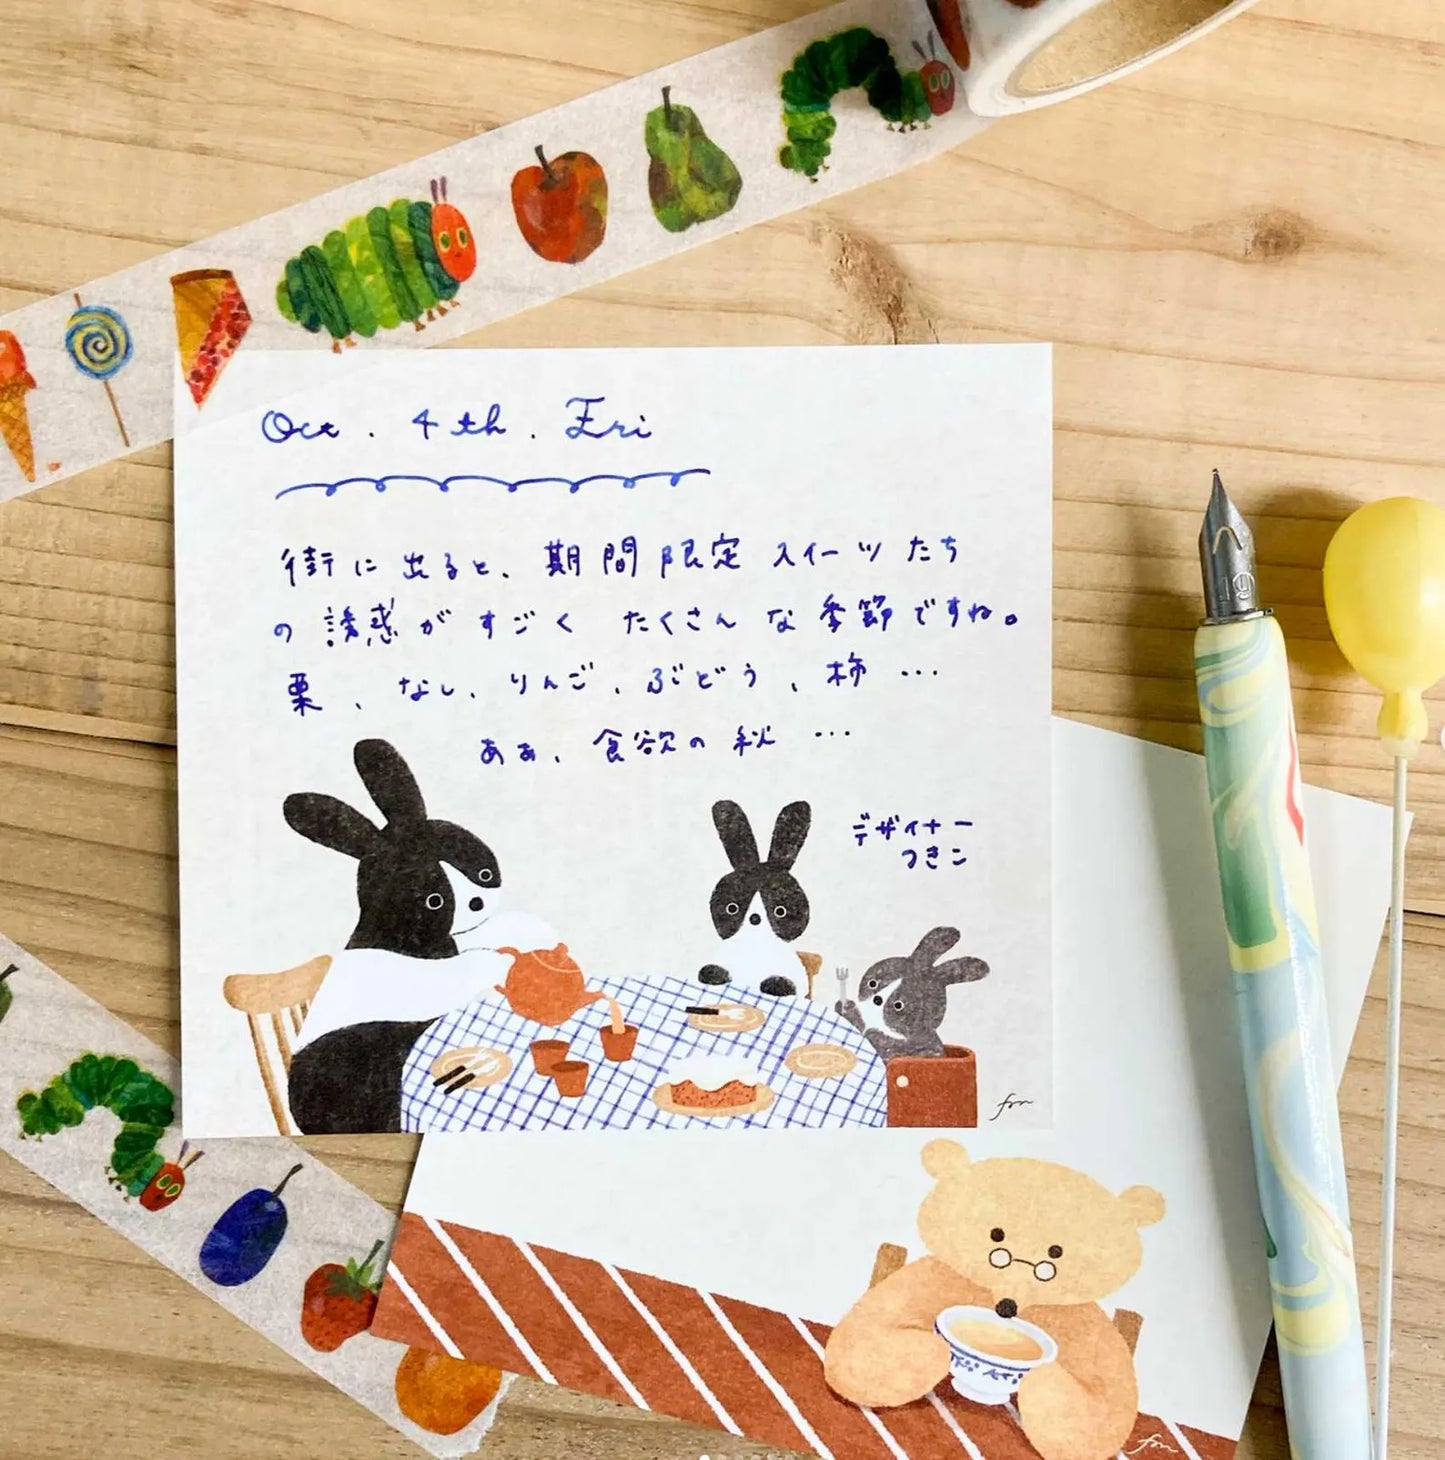 Oct. 4th. Fri
街に出ると、期間限定スイーツたち
の誘惑がすごくたくさんな季節ですね。
栗、なし、りんご、ぶどう、柿…
ああ、食欲の秋…
デザイナー
つきこ
fm
fm